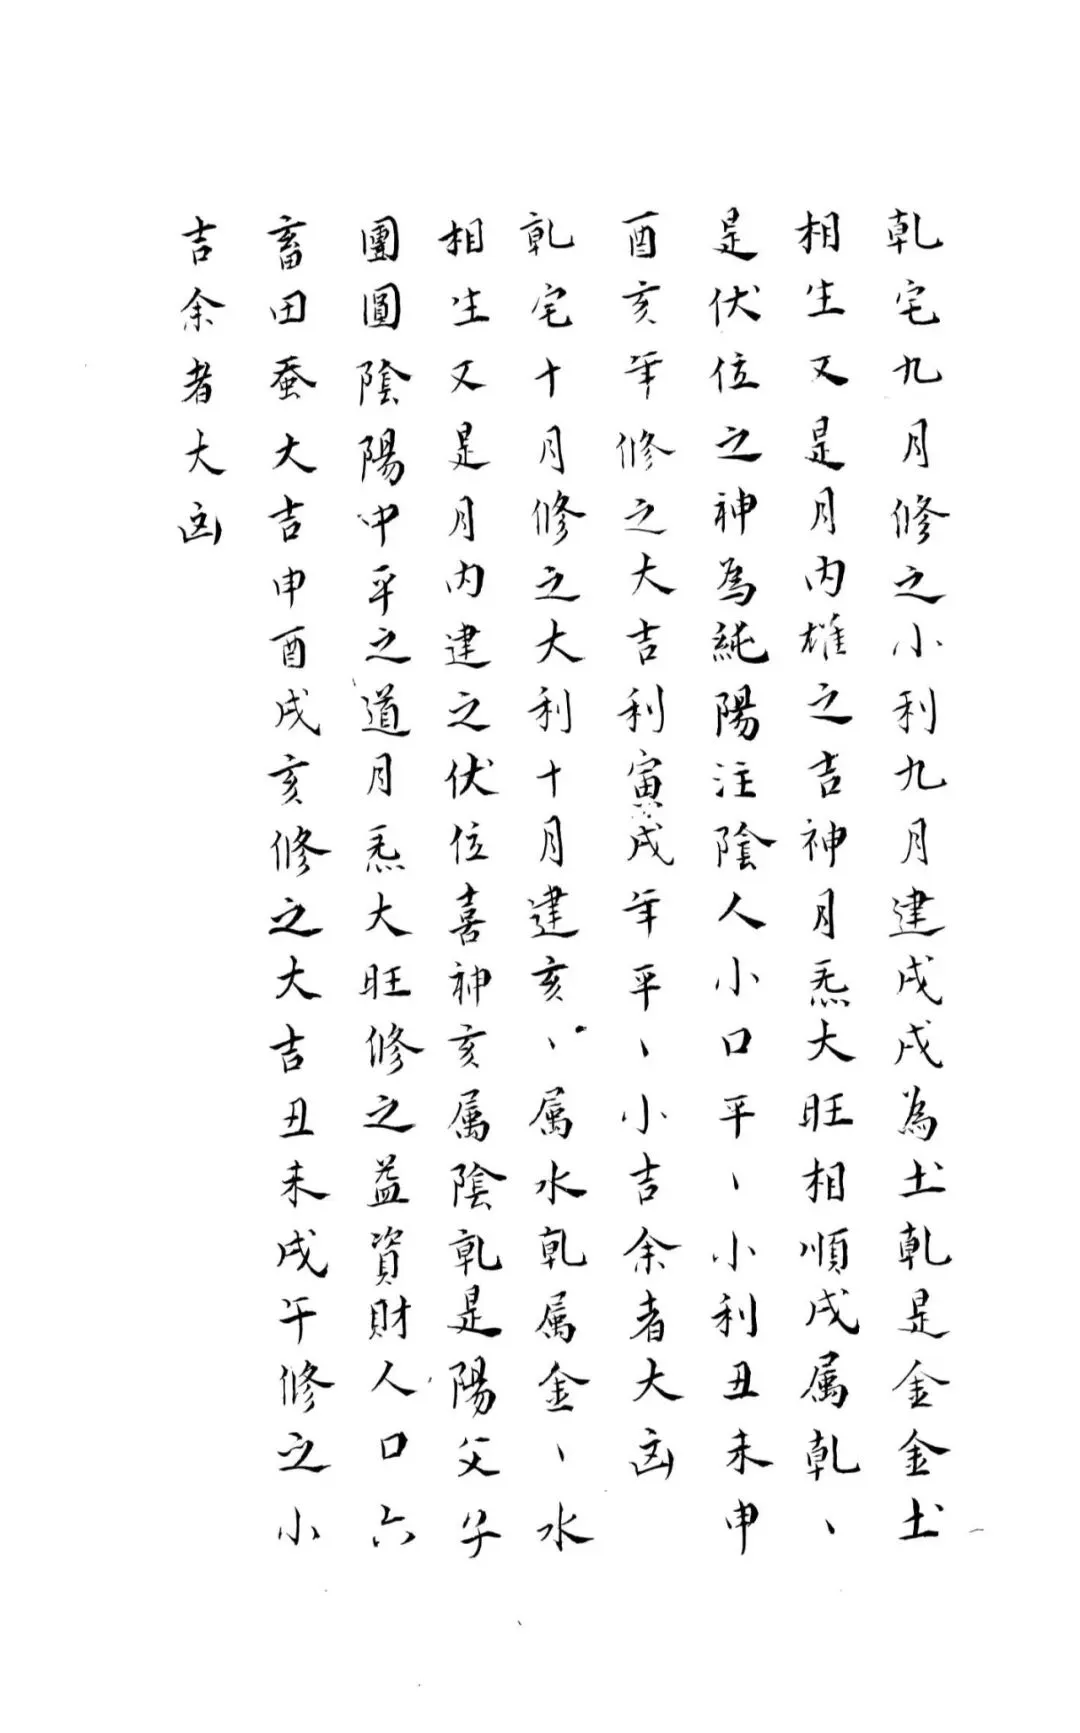 乾宅九月修之小利九月建戌戌為土乾是金金土
相生又是月内雄之吉神月炁大旺相順戌属乾、
是伏位之神為純陽注陰人小口平、小利丑未申
酉亥年修之大吉利寅戌年平、小吉余者大凶
乾宅十月修之大利十月建亥、属水乾属金、水
相生又是月内建之伏位喜神亥属陰乾是陽父子
團圓陰陽中平之道月炁大旺修之益資財人口六
畜田蚕大吉申酉戌亥修之大吉丑未戌午修之小
吉余者大凶